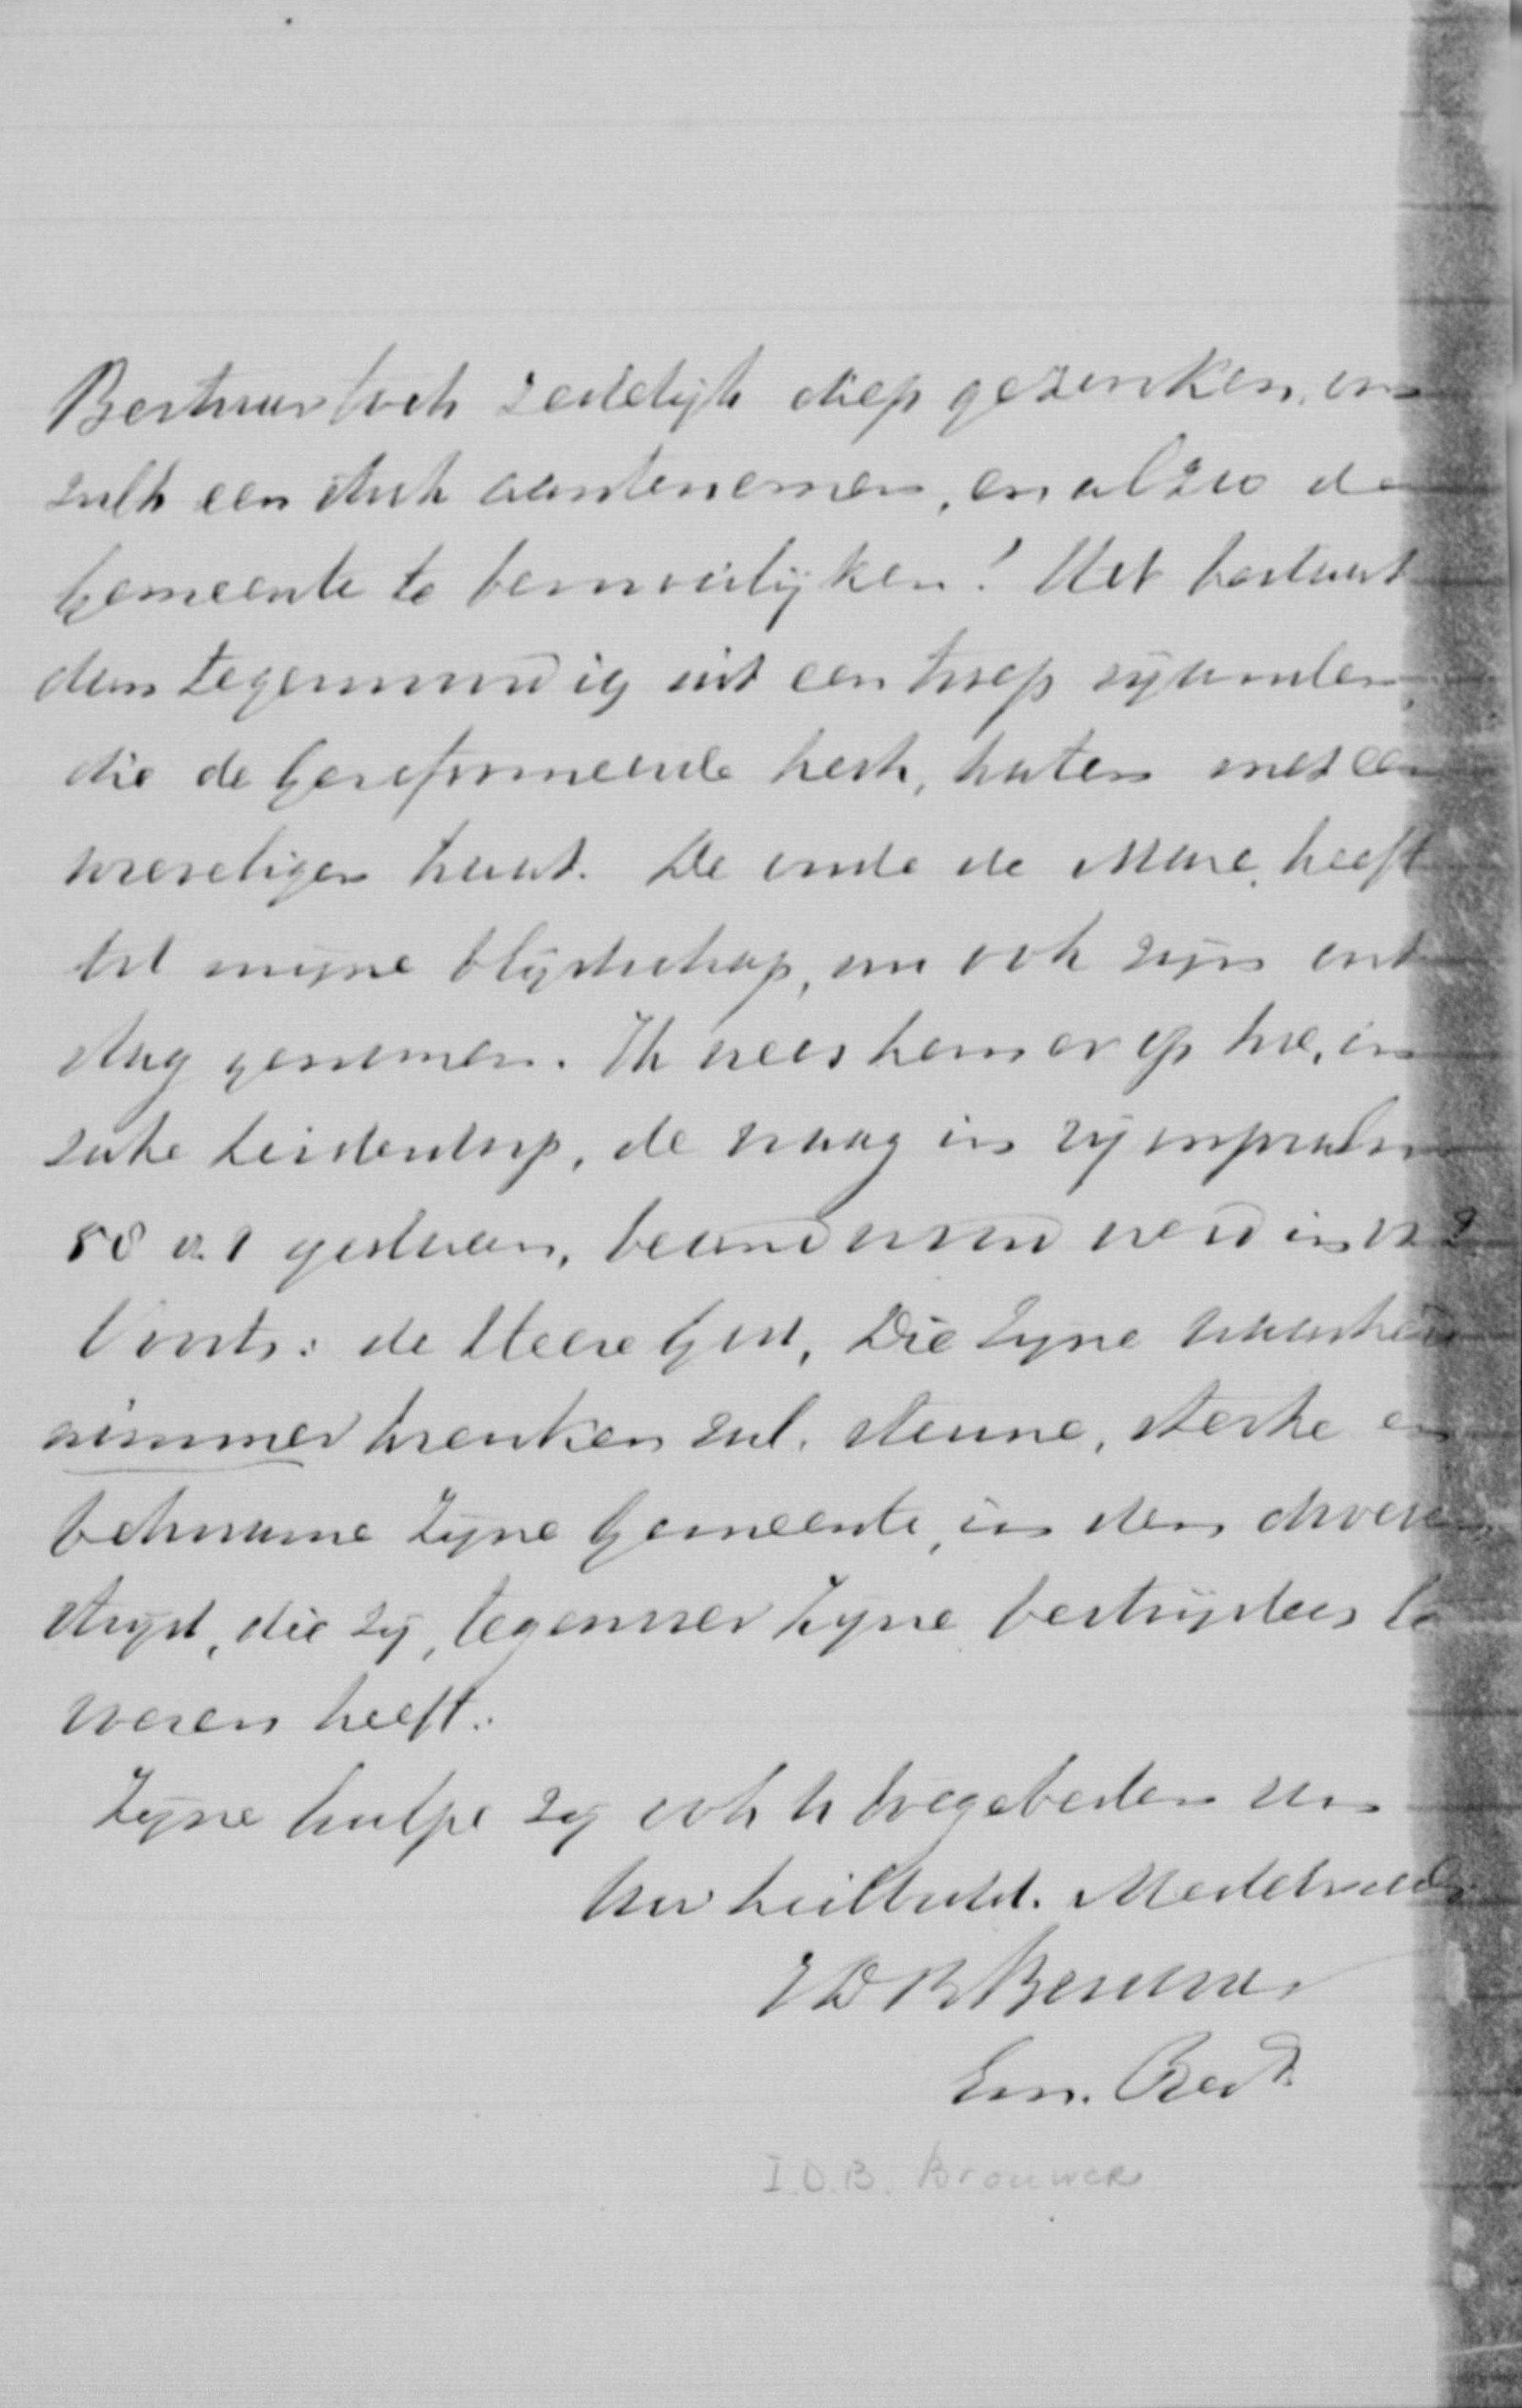 Bestuur toch zedelijk diep gezonken, om
zulk een stuk aantenemen, en alzoo de
Gemeente te bemoeilijken! Het bestaat
dan tegenwoordig uit een troep
die de Gereformeerde kerk, haten met een
wreveligen haat. De oude de Mare, heeft
tot mijne blijdschap, nu ook zijn ont
slag genomen. Ik wees hem er op hoe, in
zake Leiderdorp, de vraag in rijmpsalm
58 v. 1 gedaan, beandwoord werd in vs 2
Voorts: de Heere God, Die Zijne waarheid
nimmer krenken zal, steune, sterke en
beschrame Zijne Gemeente, in den zwaren
strijd, die zij, tegenover Zijne bestrijders te
voeren heeft.
Zijne hulpe zij ook U toegebeden van
Uw heilbidd. Medebroeder
I D B Brouwer
Em. Pred.
I.D.B. Brouwer